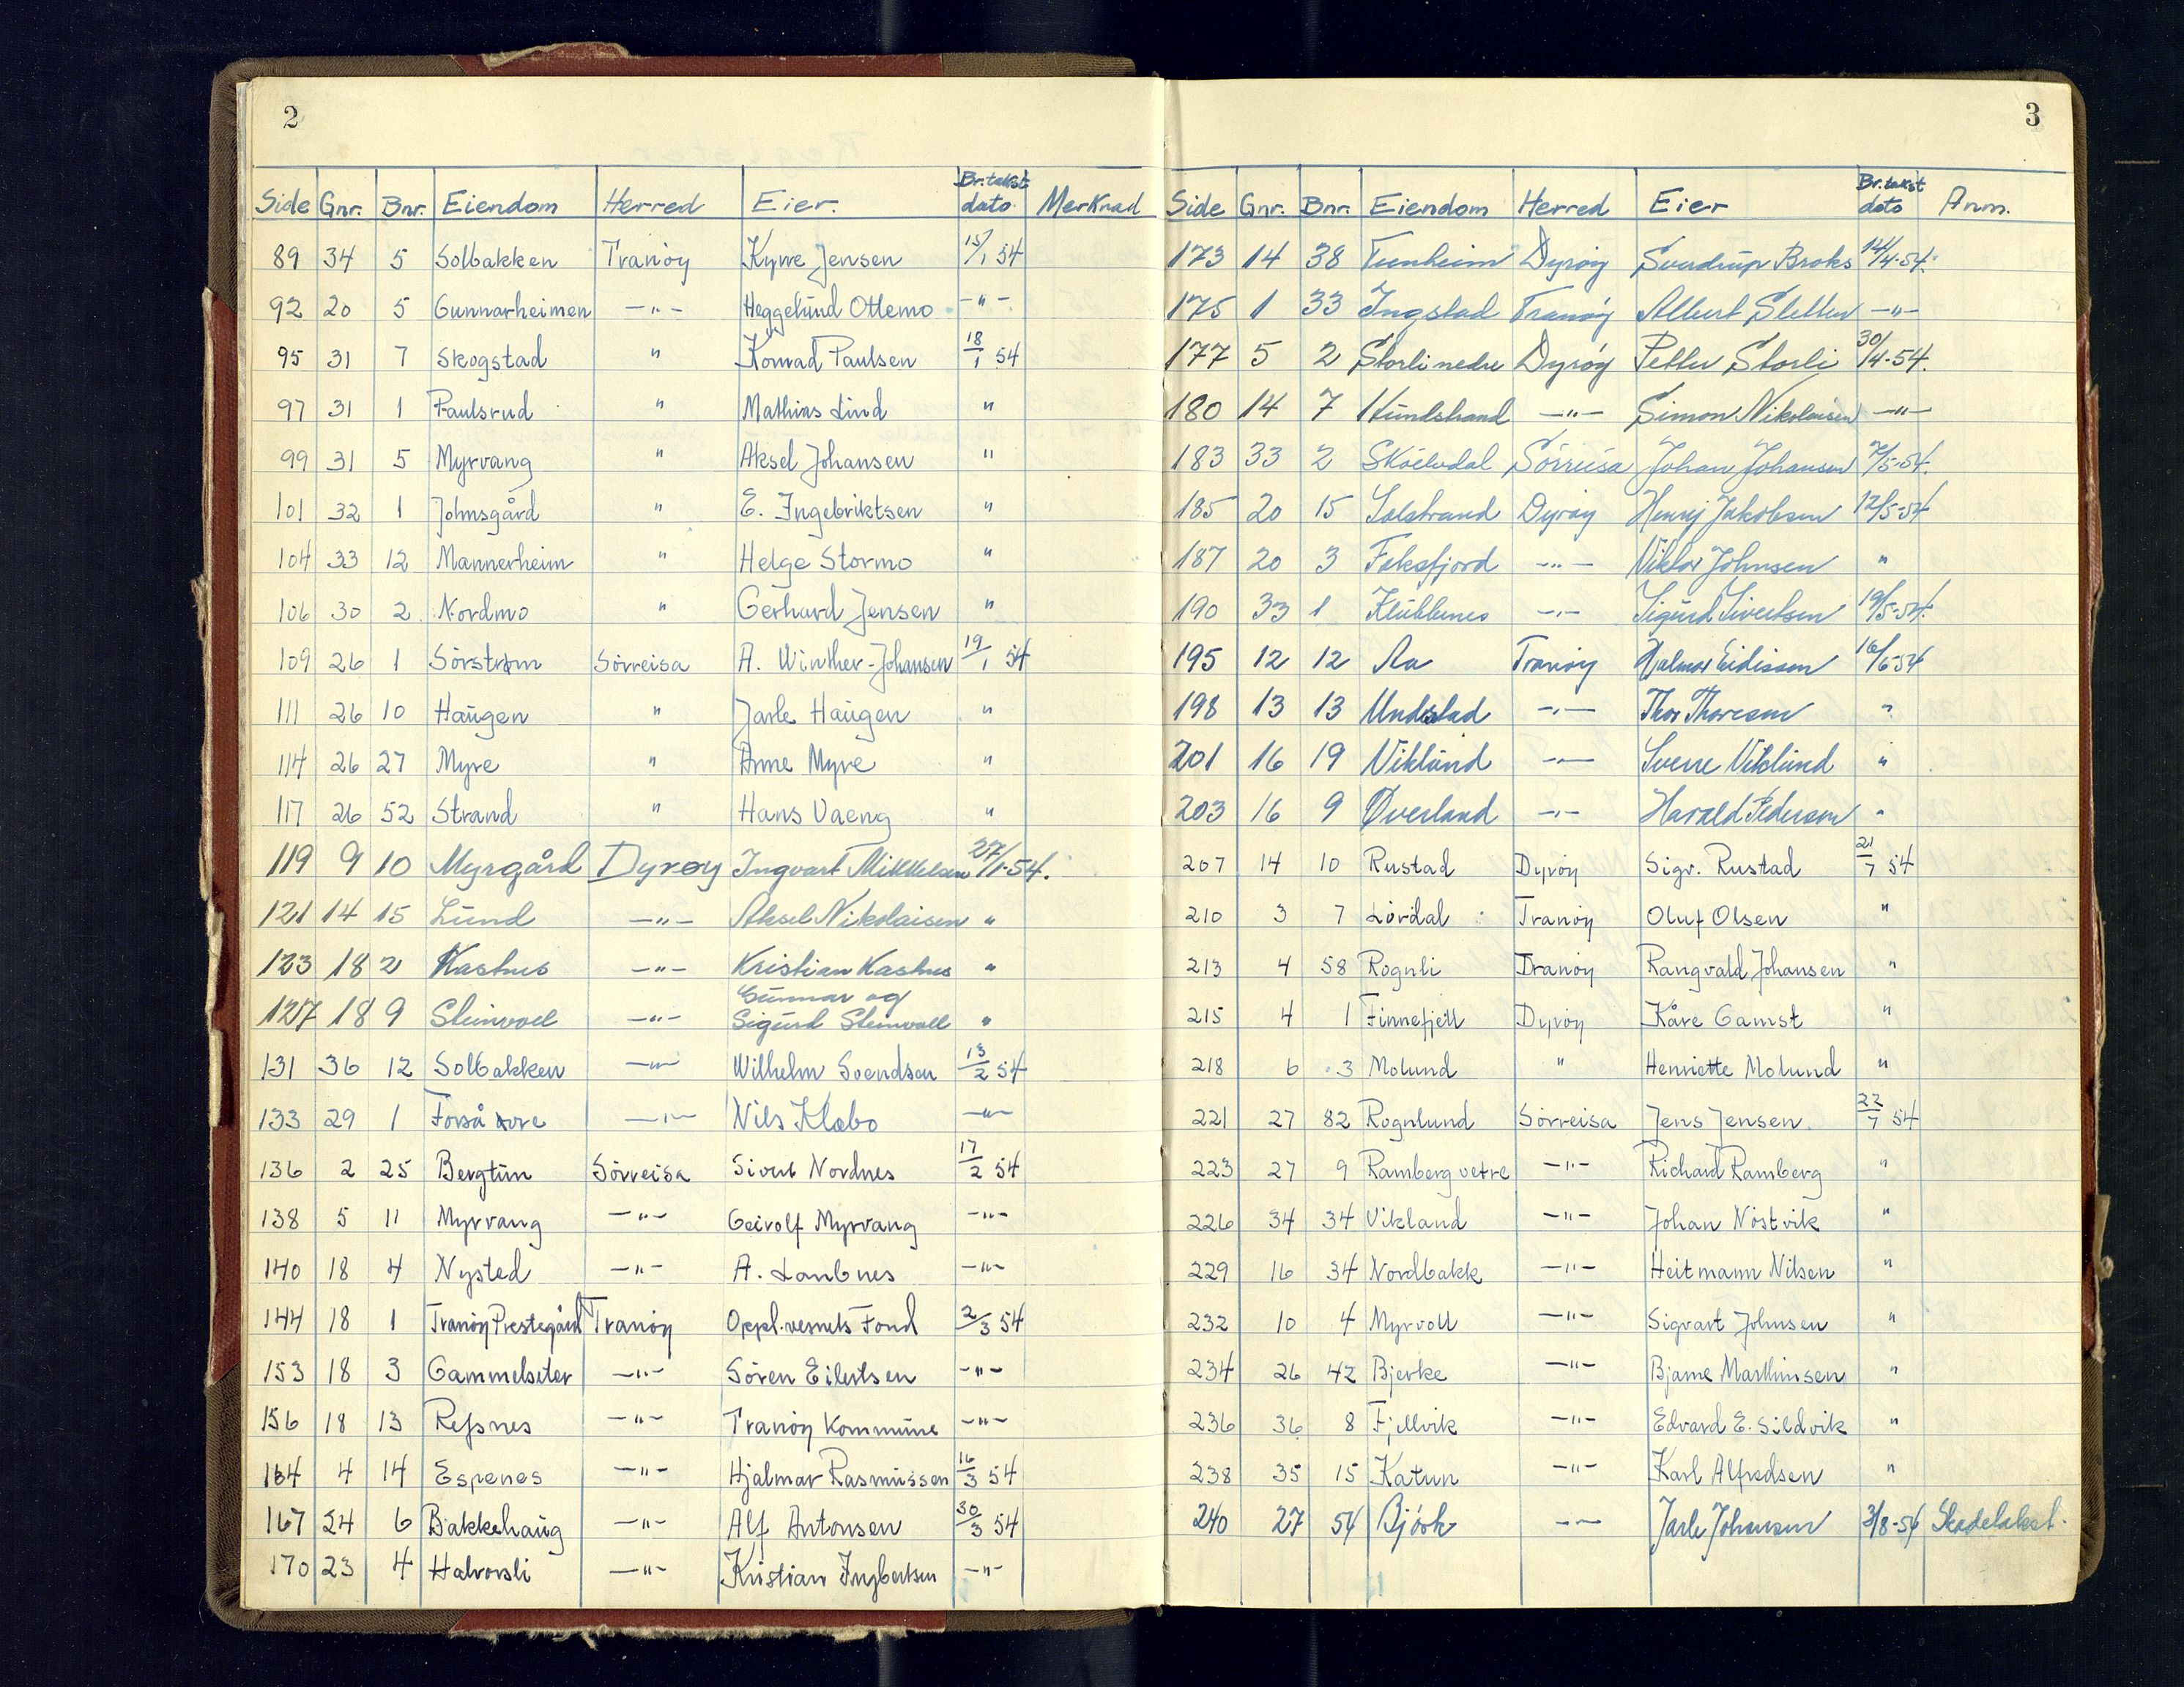 2
Side Gnr. Bnr. Eiendom Herred Eier. Br.takst dato Merknad
89 34 5 Solbakken Tranöy Kyrre Jensen 15/1 54
92 20 5 Gunnarheimen -"- Heggelund Ottemo -"-
95 31 7 Skogstad " Konrad Paulsen 18/1 54
97 31 1 Paulsrud " Mathias Lind "
99 31 5 Myrvang " Aksel Johansen "
101 32 1 Johnsgård " E. Ingebriktsen "
104 33 12 Mannerheim " Helge Stormo "
106 30 2 Nordmo " Gerhard Jensen "
109 26 1 Sörstrøm Sörreisa A. Winther-Johansen 19/1 54
111 26 10 Haugen " Jarle Haugen "
114 26 27 Myre " Arne Myre "
117 26 52 Strand " Hans Vaeng "
119 9 10 Myrgård Dyrøy Ingvart Mikkelsen 27/1-54.
121 14 15 Lund -"- Aksel Nikolaisen "
123 18 2 Kastnes -"- Kristian Kastnes "
Gunnar og
127 18 9 Steinvoll -"- Sigurd Steinvoll "
131 36 12 Solbakken -"- Wilhelm Svendsen 13/2 54
133 29 1 Forså -"- Nils Klæbo -"-
136 2 25 Bergtun Sörreisa Sivert Nordnes 17/2 54
138 5 11 Myrvang -"- Geirolf Myrvang -"-
140 18 4 Nysted -"- A. Lanbnes -"-
144 18 1 Tranöy Prestegård Tranöy Oppl.vesnets Fond 2/3 54
153 18 3 Gammelseter -"- Sören Eilertsen -"-
156 18 13 Refsnes -"- Tranöy Kommune -"-
164 4 14 Espenes -"- Hjalmar Rasmussen 16/3 54
167 24 6 Bakkehaug -"- Alf Antonsen 30/3 54
170 23 4 Halvorsli -"- Kristian Ingbertsen -"-
3
Side Gnr. Bnr. Eiendom Herred Eier Br.takst dato Anm.
173 14 38 Tunheim Dyröy Sverdrup Broks 14/4-54.
175 1 33 Ingstad Tranöy Albert Sletten -"-
177 5 2 Storli nedre Dyröy Petter Storli 30/4-54.
180 14 7 Hundstrand -"- Simon Nikolaisen -"-
183 33 2 Sköelvdal Sörreisa Johan Johansen 7/5-54.
185 20 15 Solstrand Dyröy Henry Jakobsen 12/5-54
187 20 3 Faksfjord -"- Viktor Johnsen "
190 33 1 Klubbenes -"- Sigurd Sivertsen 19/5-54.
195 12 12 Aa Tranöy Hjalmar Eidissen 16/6-54
198 13 13 Undstad -"- Thor Thoresen "
201 16 19 Viklund -"- Sverre Viklund "
203 16 9 Øverland -"- Harald Pedersen "
207 14 10 Rustad Dyröy Sigv. Rustad 21/7 54
210 3 7 Lördal Tranöy Oluf Olsen "
213 4 58 Rognli Tranöy Rangvald Johansen "
215 4 1 Finnefjell Dyröy Kåre Gamst "
218 6 3 Molund " Henriette Molund "
221 27 82 Rognlund Sörreisa Jens Jensen 22/7 54
223 27 9 Ramberg vetre -"- Richard Ramberg "
226 34 34 Vikland -"- Johan Nöstvik "
229 16 34 Nordbakk -"- Heitmann Nilsen "
232 10 4 Myrvoll -"- Sigvart Johnsen "
234 26 42 Bjerke -"- Bjarne Marthinsen "
236 36 8 Fjellvik -"- Edvard E. Sildvik "
238 35 15 Katun -"- Karl Alfredsen "
240 27 54 Björk -"- Jarle Johansen 3/8-54 Skadetakst.